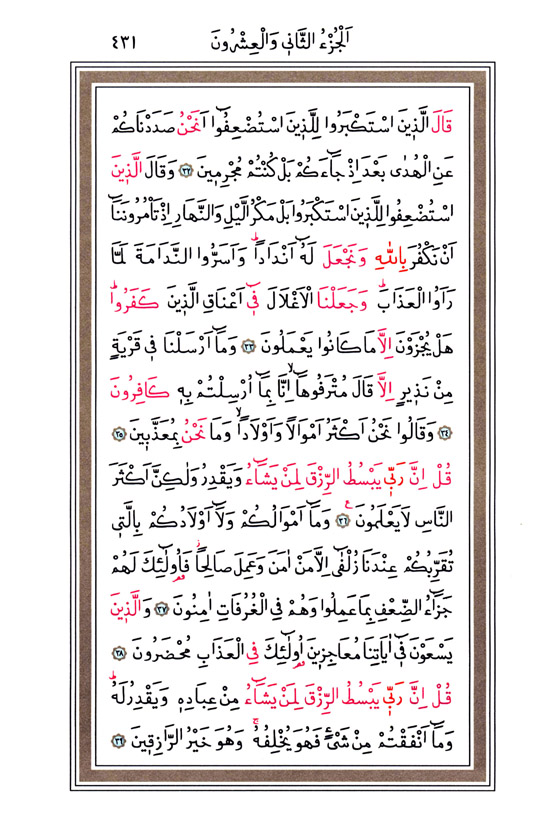 اَلْجُزْءُ الثَّانٖي وَالْعِشْرُونَ
٤٣١
قَالَ الَّذٖينَ اسْتَكْبَرُوا لِلَّذٖينَ اسْتُضْعِفُٓوا اَنَحْنُ صَدَدْنَاكُمْ
عَنِ الْهُدٰى بَعْدَ اِذْ جَٓاءَكُمْ بَلْ كُنْتُمْ مُجْرِمٖينَ ﴿٣٢﴾ وَقَالَ الَّذٖينَ
اسْتُضْعِفُوا لِلَّذٖينَ اسْتَكْبَرُوا بَلْ مَكْرُ الَّيْلِ وَالنَّهَارِ اِذْ تَأْمُرُونَنَٓا
اَنْ نَكْفُرَ بِاللّٰهِ وَنَجْعَلَ لَهُٓ اَنْدَادًاؕ وَاَسَرُّوا النَّدَامَةَ لَمَّا
رَاَوُا الْعَذَابَؕ وَجَعَلْنَا الْاَغْلَالَ فٖٓي اَعْنَاقِ الَّذٖينَ كَفَرُواؕ
هَلْ يُجْزَوْنَ اِلَّا مَا كَانُوا يَعْمَلُونَ ﴿٣٣﴾ وَمَٓا اَرْسَلْنَا فٖي قَرْيَةٍ
مِنْ نَذٖيرٍ اِلَّا قَالَ مُتْرَفُوهَٓاۙ اِنَّا بِمَٓا اُرْسِلْتُمْ بِهٖ كَافِرُونَ
﴿٣٤﴾ وَقَالُوا نَحْنُ اَكْثَرُ اَمْوَالًا وَاَوْلَادًاۙ وَمَا نَحْنُ بِمُعَذَّبٖينَ ﴿٣٥﴾
قُلْ اِنَّ رَبّٖي يَبْسُطُ الرِّزْقَ لِمَنْ يَشَٓاءُ وَيَقْدِرُ وَلٰكِنَّ اَكْثَرَ
النَّاسِ لَا يَعْلَمُونَࣖ ﴿٣٦﴾ وَمَٓا اَمْوَالُكُمْ وَلَٓا اَوْلَادُكُمْ بِالَّتٖي
تُقَرِّبُكُمْ عِنْدَنَا زُلْفٰٓى اِلَّا مَنْ اٰمَنَ وَعَمِلَ صَالِحًاؗ فَاُو۬لٰٓئِكَ لَهُمْ
جَزَٓاءُ الضِّعْفِ بِمَا عَمِلُوا وَهُمْ فِي الْغُرُفَاتِ اٰمِنُونَ ﴿٣٧﴾ وَالَّذٖينَ
يَسْعَوْنَ فٖٓي اٰيَاتِنَا مُعَاجِزٖينَ اُو۬لٰٓئِكَ فِي الْعَذَابِ مُحْضَرُونَ ﴿٣٨﴾
قُلْ اِنَّ رَبّٖي يَبْسُطُ الرِّزْقَ لِمَنْ يَشَٓاءُ مِنْ عِبَادِهٖ وَيَقْدِرُ لَهُؕ
وَمَٓا اَنْفَقْتُمْ مِنْ شَيْءٍ فَهُوَ يُخْلِفُهُۚ وَهُوَ خَيْرُ الرَّازِقٖينَ ﴿٣٩﴾